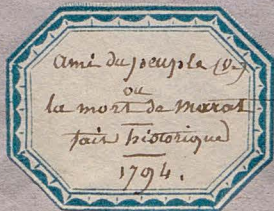 Ami du peuple (L')
ou
la mort de Marat
fait historique
1794.